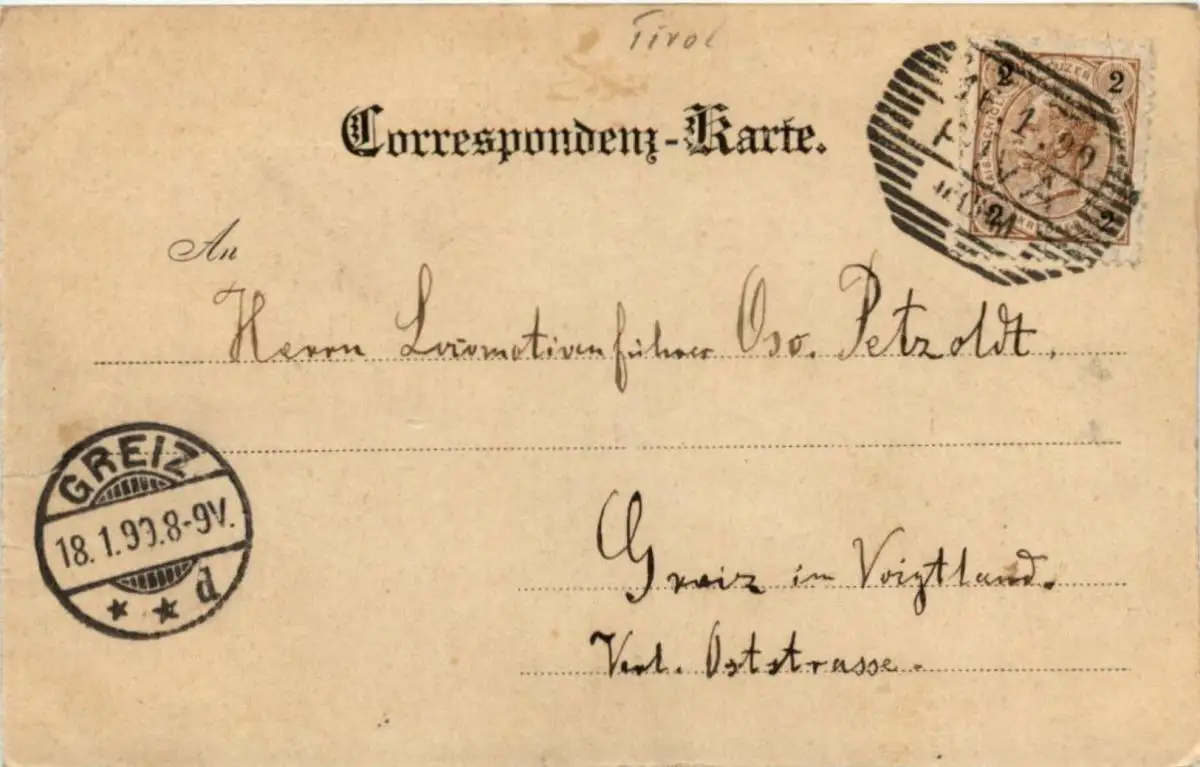 Tirol
Correspondenz-Karte.
2 2
1.99
2 2
An
Herrn Locomotivenführer Osw. Petzoldt.
GREIZ
18.1.99.8-9V.
* * d
Greiz im Voigtland.
Verl. Oststrasse.